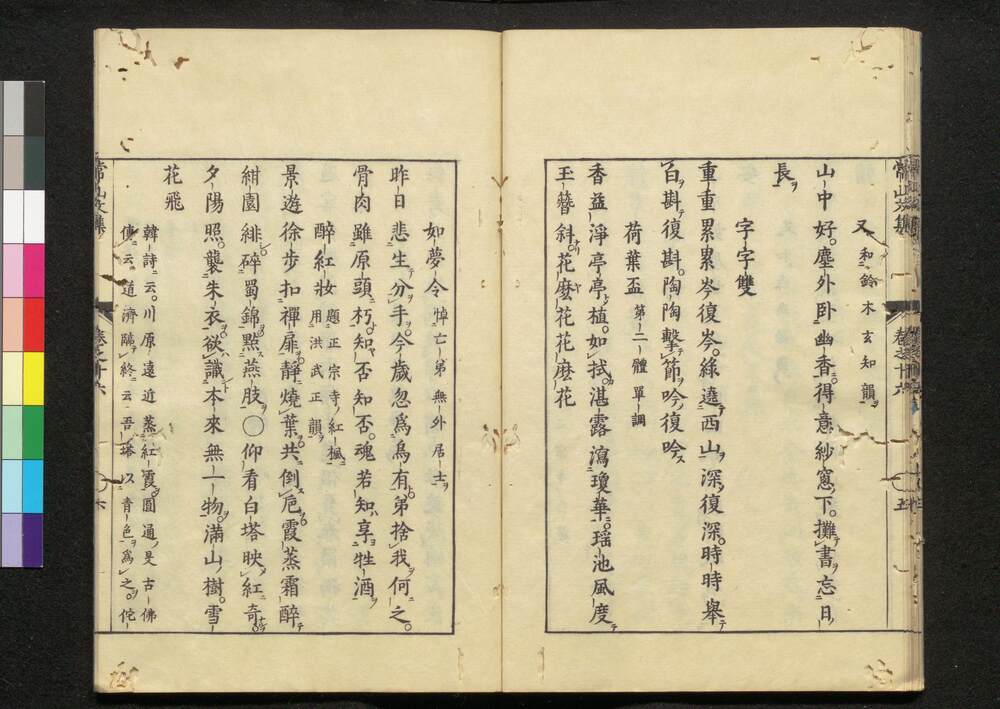 又 和鈴木玄知韻
山中好塵外卧幽香得意紗窓下攤書忘日
長
字字雙
重重累累岑復岑綠遶西山深復深時時舉
百斟復斟陶陶擊節吟復吟
荷葉盃 第二體單調
香益淨亭亭植如拭湛露瀉瓊華瑶池風度
玉簪斜花麽花花麽花
常山文集 卷之十六 五
如夢令 悼亡弟無外居士
昨日悲生分手今歲忽爲烏有弟捨我何之
骨肉雖原頭朽知否知否魂若知享牲酒
醉紅妝 題正宗寺紅楓用洪武正韻
景遊徐步扣禪扉靜燒葉共倒卮霞蒸霜醉
紺園緋碎蜀錦㸃燕肢〇仰看白塔映紅奇
夕陽照襲朱衣欲識本來無一物滿山樹雪
花飛
韓詩云川原遠近蒸紅霞圓通旻古佛
傳云道濟臨終云吾塔以青色爲之佗
常山文集 卷之十六 六